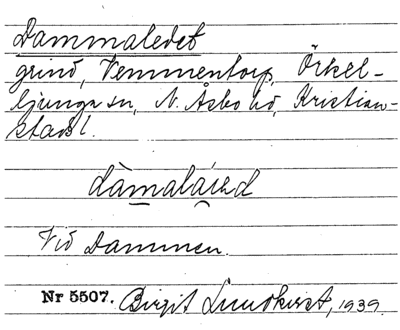 Dammaledet
grind, Vemmentorp, Örkel-
ljunga sn, N. Åsbo hd, Kristian-
stads l.
Vid Dammen.
Nr 5507. Birgit Lundkvist, 1939.